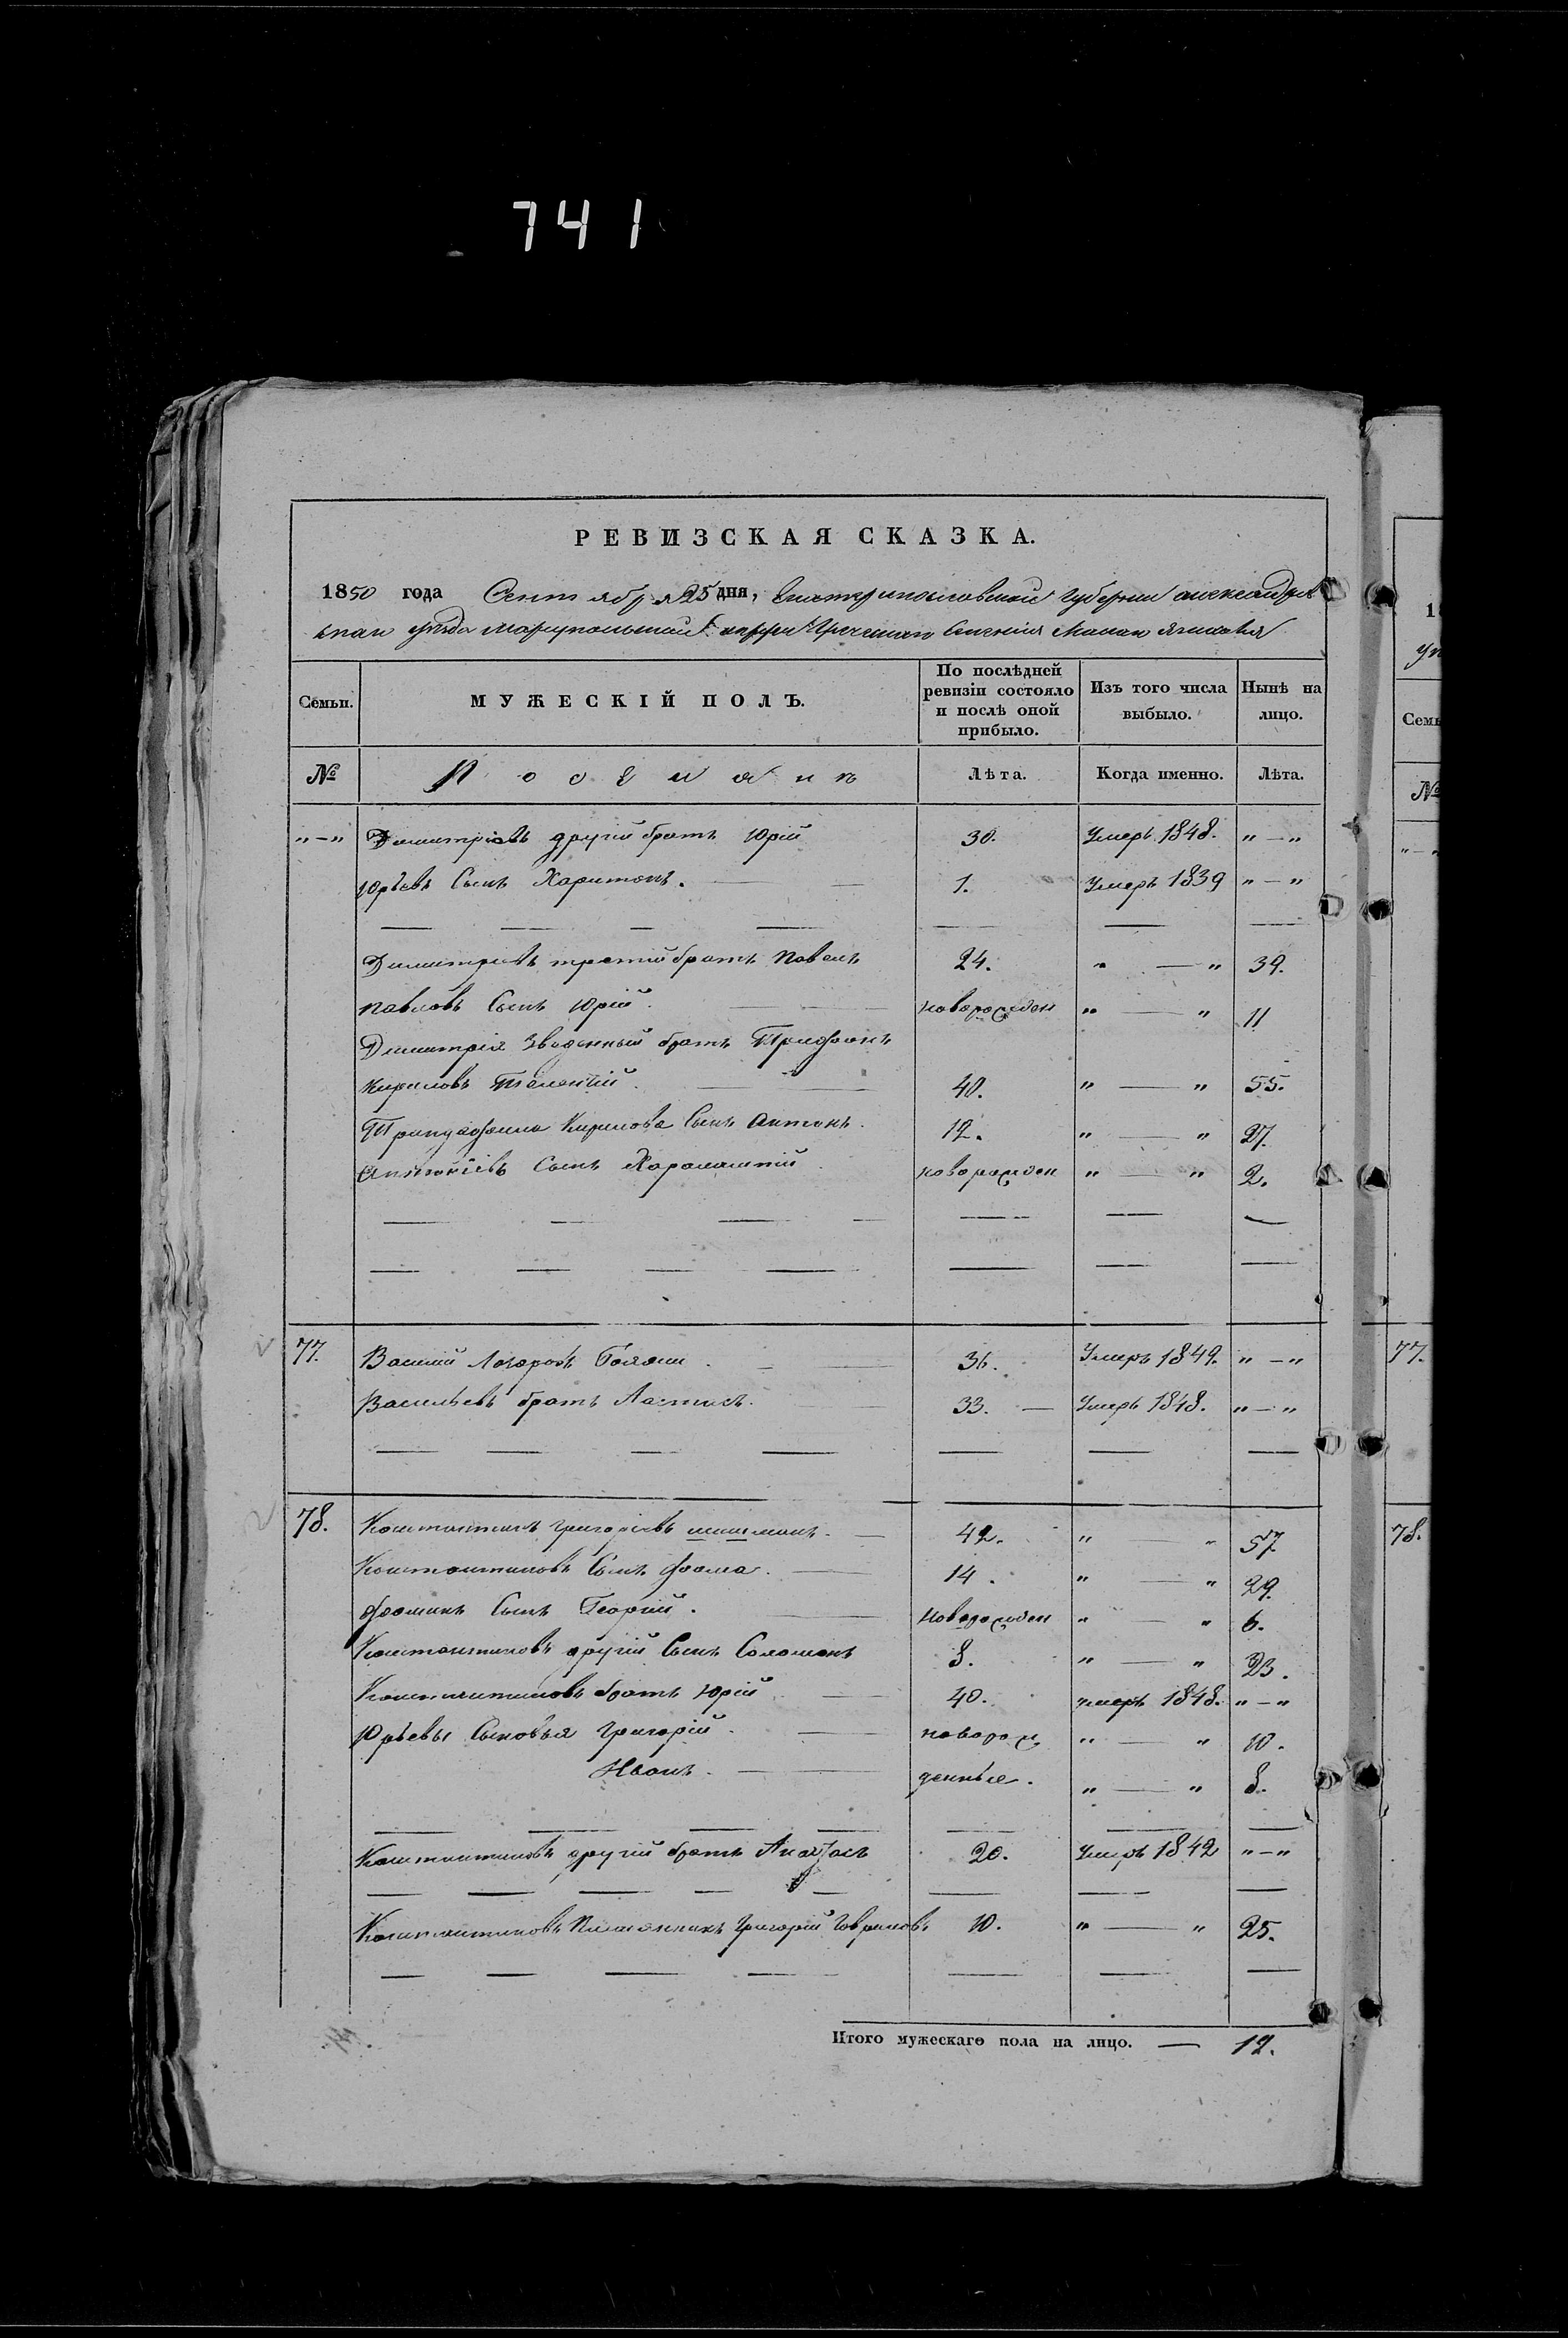 741
РЕВИЗСКАЯ СКАЗКА.
1850 года Сентября 25 дня, Екатеринославской Губернии александров
скаго уезда мариупольскаго округа Греческаго Селения
Семьи. МУЖЕСКІЙ ПОЛЪ. По послѣдней ревизіи состояло и послѣ оной прибыло. Изъ того числа выбыло. Нынѣ на лицо.
№ Поселянъ Лѣта. Когда именно. Лѣта.
"—" Димитріевъ другій братъ Юрій 30. Умеръ 1848. "—"
Юрьевъ Сынъ Харитонъ. 1. Умеръ 1839 "—"
Димитріевъ третій братъ Павелъ 24. "—" 39.
Павловъ Сынъ Юрій. новорожден "—" 11
Димитрія Зведенный братъ
Кириловъ 40. "—" 55.
Кирилова Сынъ Антонъ. 12. "—" 27.
Антоніевъ Сынъ Харлампій новорожден "—" 2.
77. Василий 36. Умеръ 1849. "—"
Васильевъ братъ 33. Умеръ 1848. "—"
78. Константинъ Григорьевъ шишманъ. 42. "—" 57.
Константиновъ Сынъ Фома. 14. "—" 29.
Фоминъ Сынъ Георгий. новорожден "—" 6.
Константиновъ другій Сынъ Соломонъ 8. "—" 23.
Константиновъ братъ Юрій 40. умеръ 1848. "—"
Юрьевы Сыновья Григорій. новорож "—" 10.
Иванъ. денные. "—" 8.
Константиновъ другій братъ 20. Умеръ 1842 "—"
Константиновъ Племянникъ Григорій Гавриловъ 10. "—" 25.
Итого мужескаго пола на лицо. — 12.
1
Семь
№
"—"
77.
78.